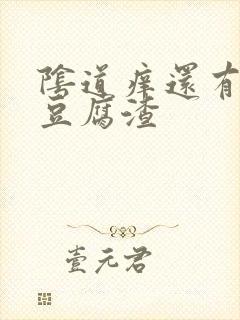 陰道痒還有
豆腐渣
壹元君